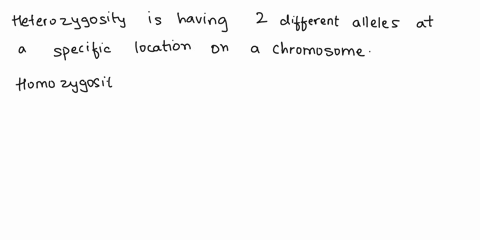 Heterozygosity is having 2 different alleles at
a specific location on a chromosome.
Homozygosit